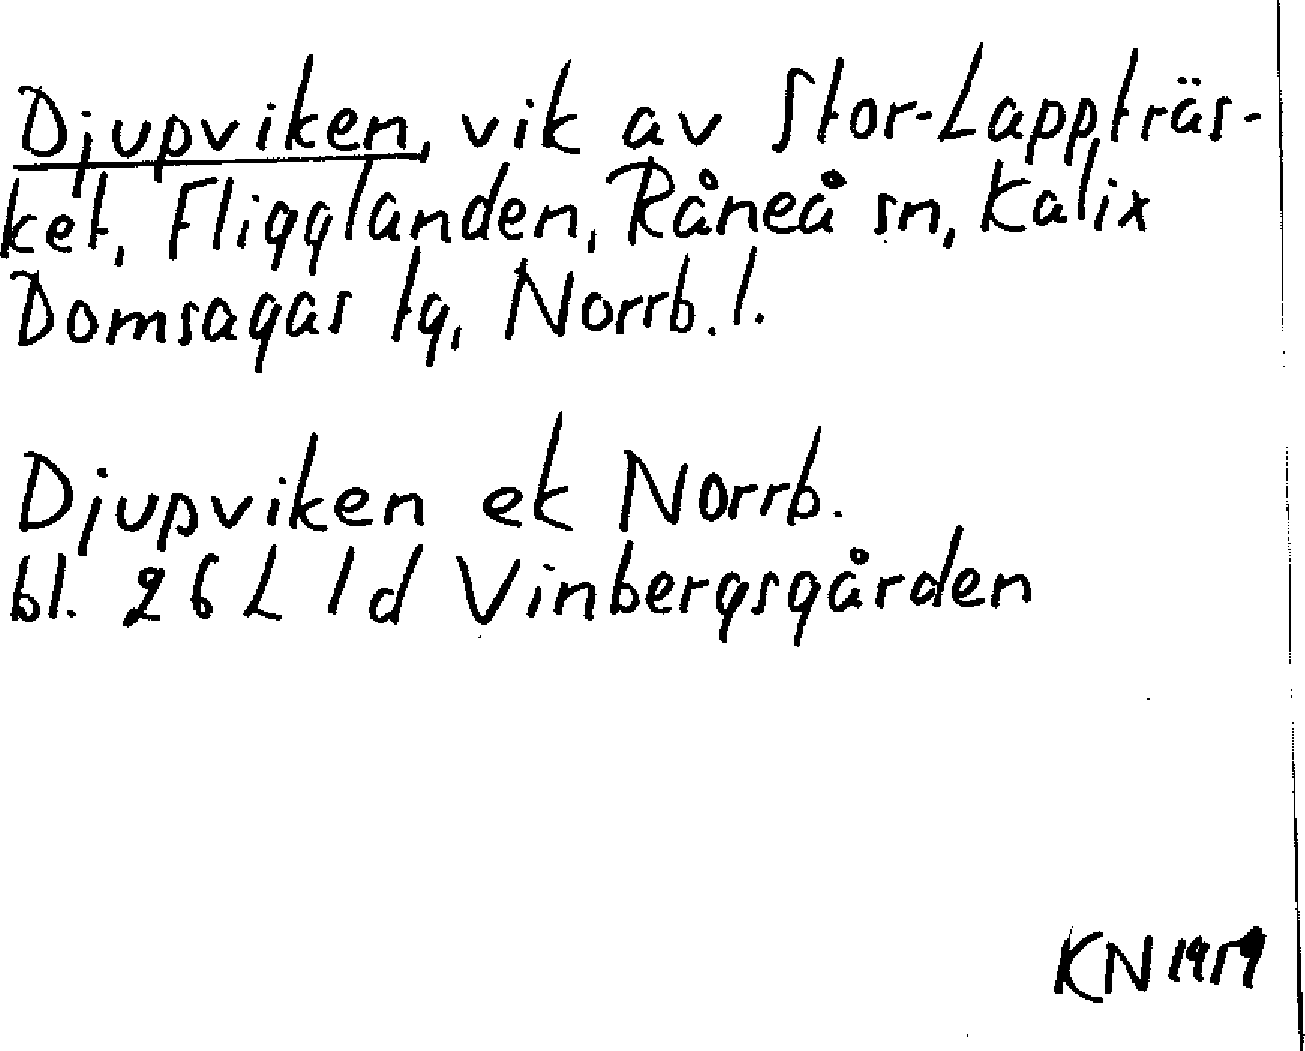 Djupviken, vik av Stor-Lappträs-
ket, Fligglanden, Råneå sn, Kalix
Domsagas tg, Norrb. l.
Djupviken ek Norrb.
bl. 26 L 1d Vinbergsgården
KN 1959